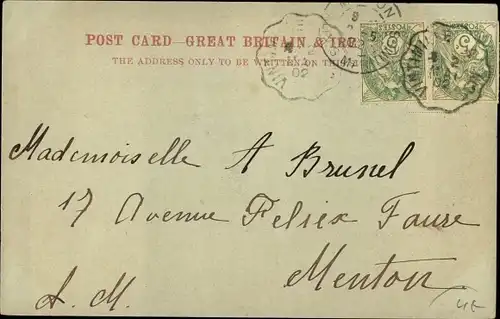 POST CARD—GREAT BRITAIN & IRE
THE ADDRESS ONLY TO BE WRITTEN ON THIS
Mademoiselle A Brunel
17 Avenue Felix Faure
Menton
A. M.